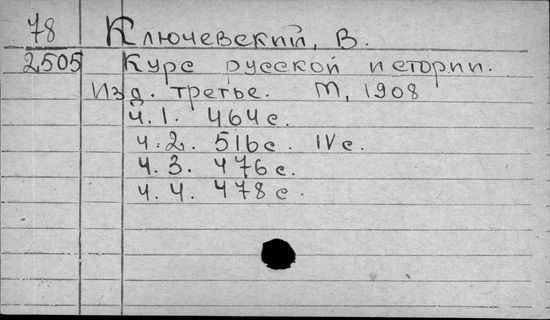 78 Ключевский, В.
2505 Курс русской истории.
Изд. третье. М, 1908
ч. 1. 464с.
ч. 2. 516с. IVс.
ч. 3. 476с.
ч. 4. 478с.